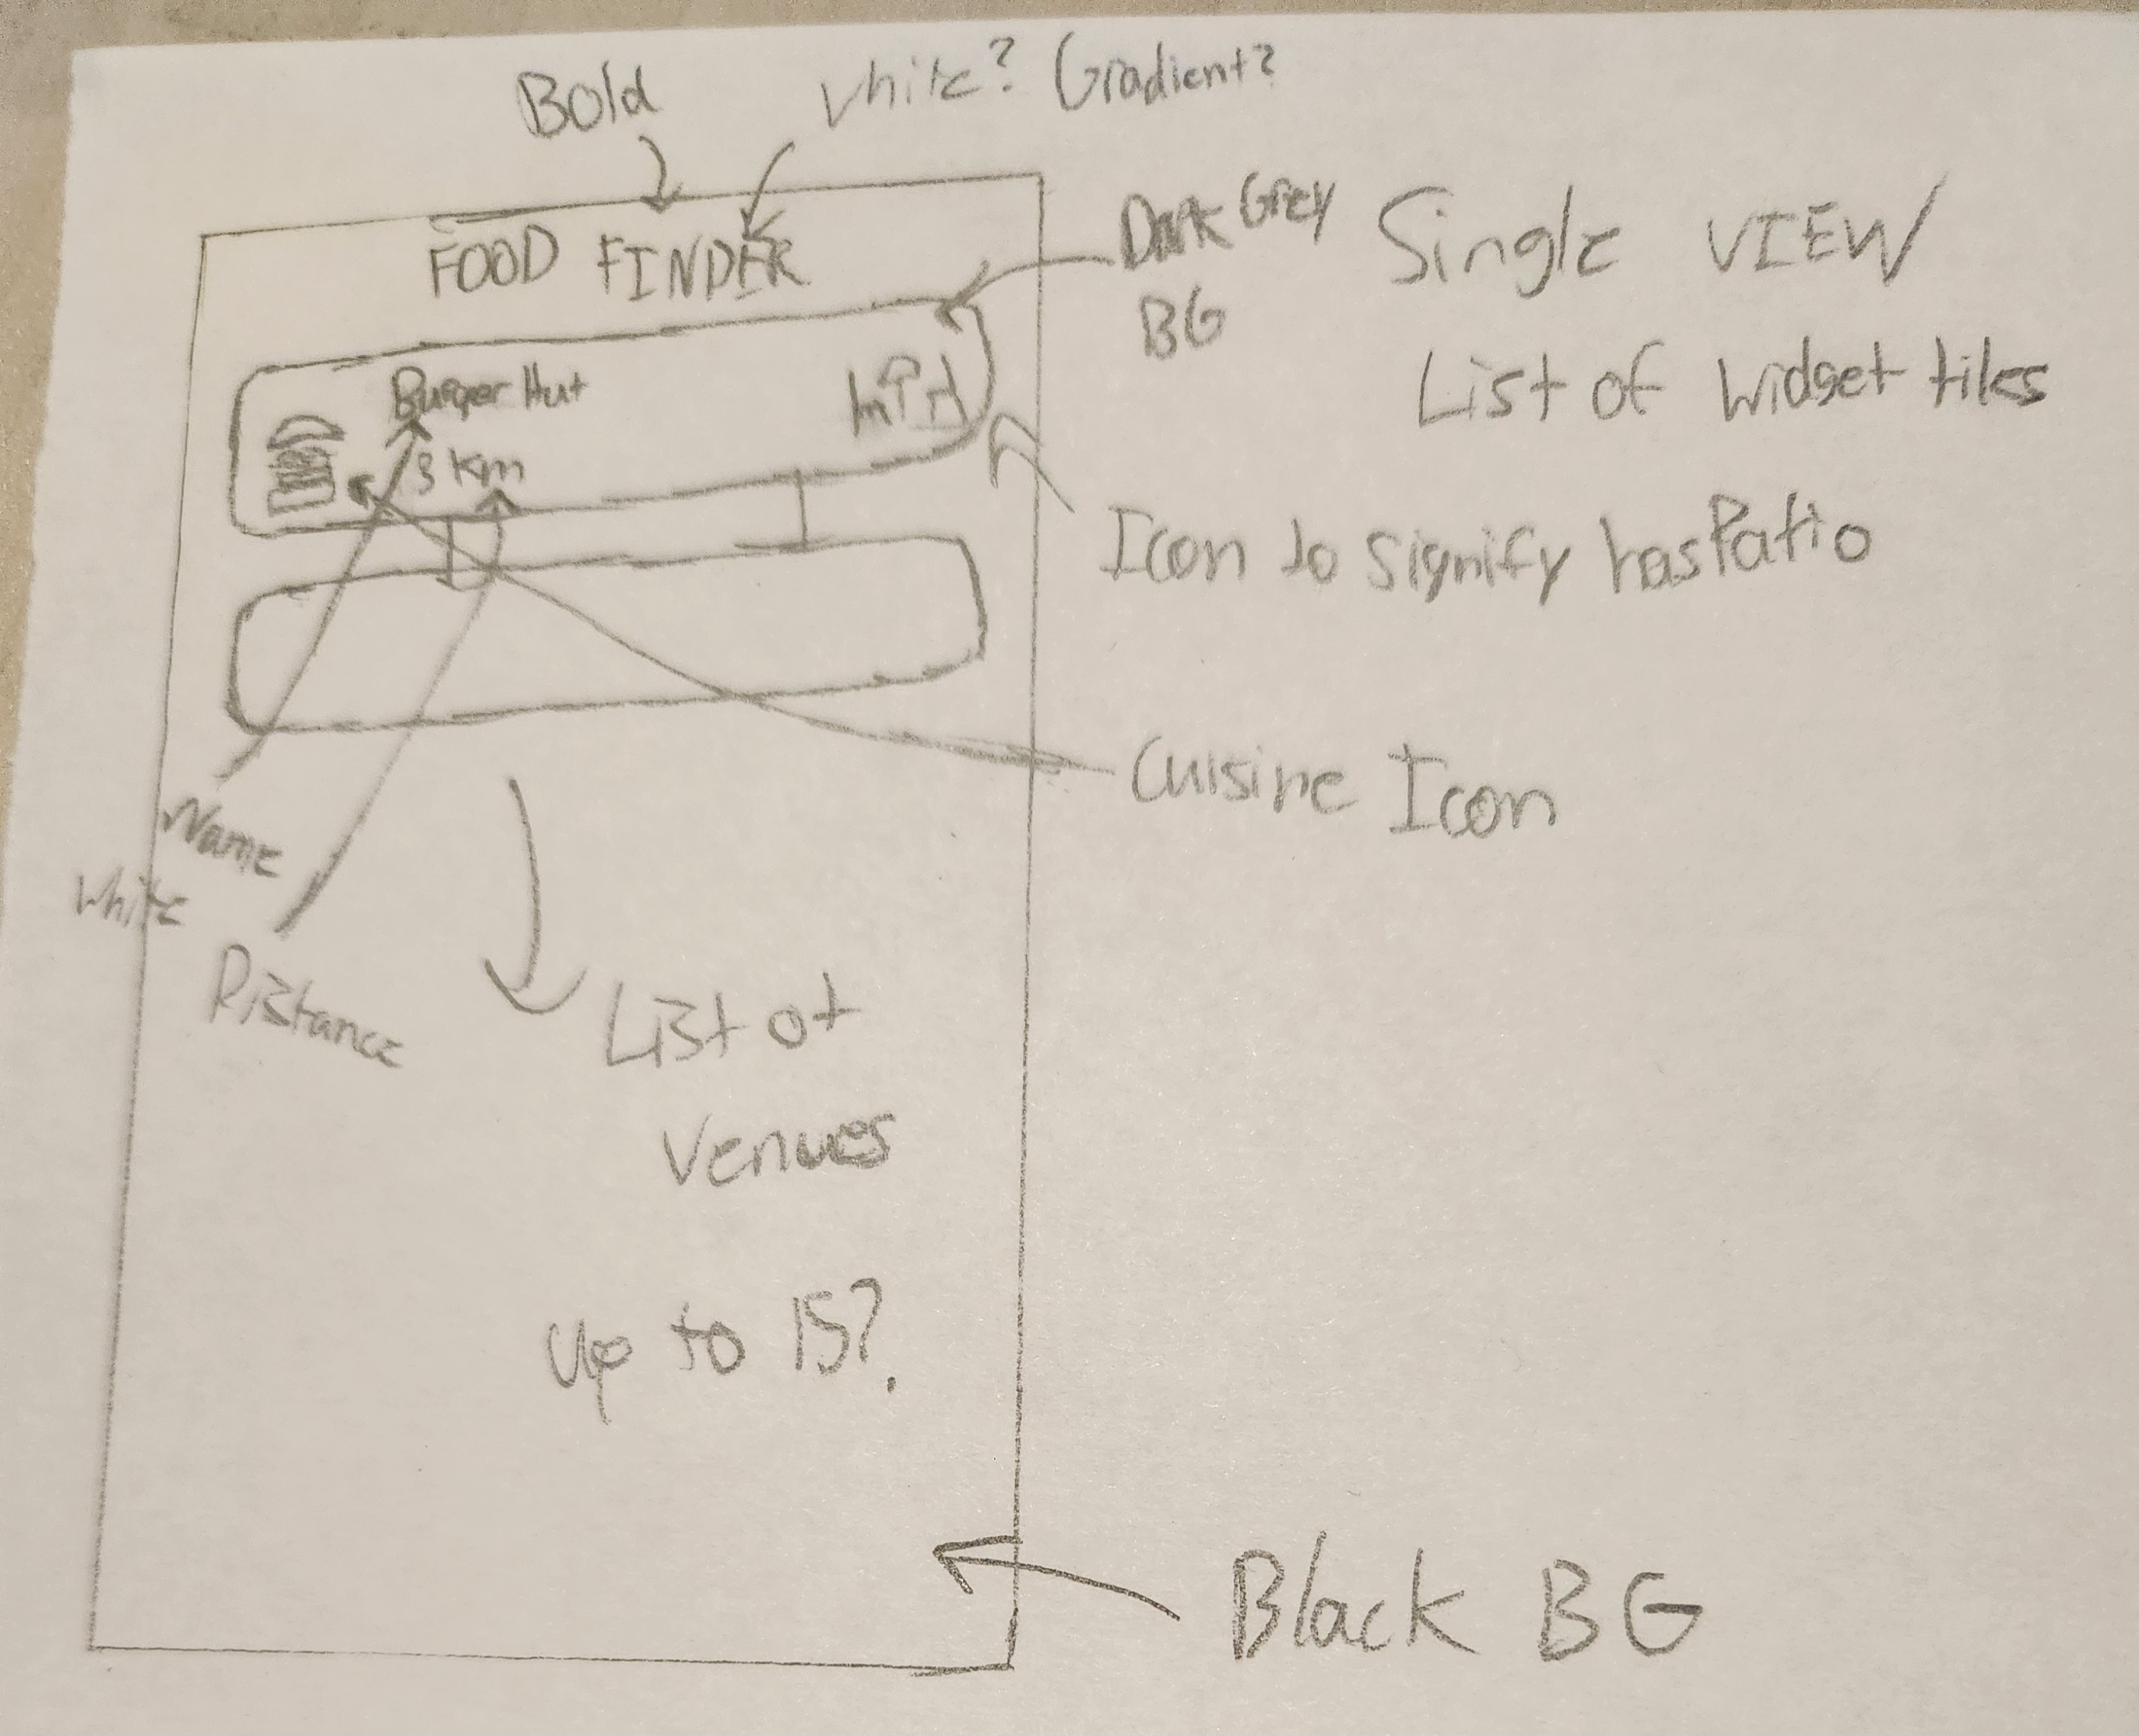 Bold
White? Gradient?
FOOD FINDER
Dark Grey
BG
Single VIEW
List of Widget tiles
Burger Hut
3 Km
Icon to signify hasPatio
Cuisine Icon
Name
White
Distance
List of
Venues
Up to 15?
Black BG